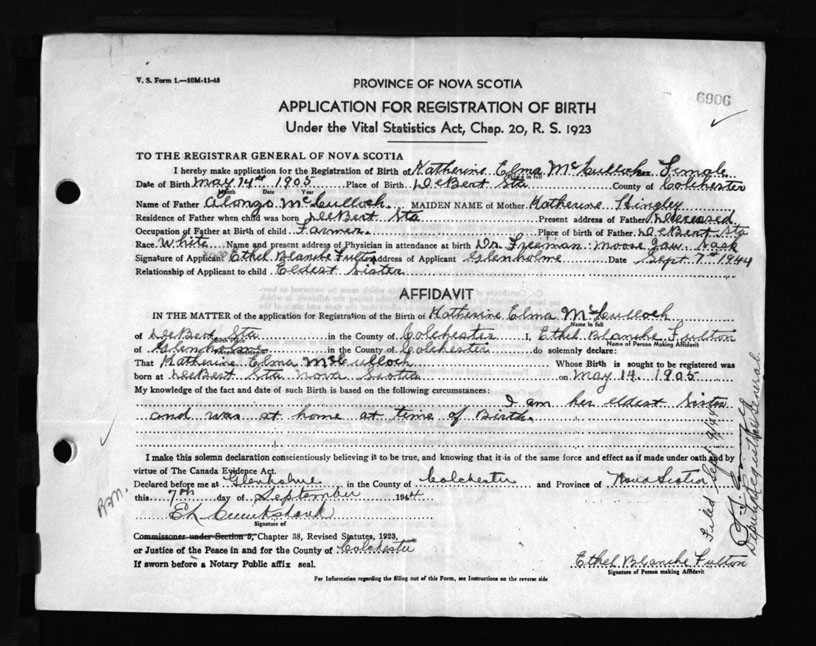 V. S. Form 1.—10M-11-43
PROVINCE OF NOVA SCOTIA
6906
APPLICATION FOR REGISTRATION OF BIRTH
Under the Vital Statistics Act, Chap. 20, R. S. 1923
TO THE REGISTRAR GENERAL OF NOVA SCOTIA
I hereby make application for the Registration of Birth of Katherine Elma McCulloch Sex Female
Date of Birth May 14th 1905 Place of Birth DeBert Sta County of Colchester
Month Date Year
Name of Father Alonzo McCulloch MAIDEN NAME of Mother Katherine Hingley
Residence of Father when child was born DeBert Sta Present address of Father Deceased
Occupation of Father at Birth of child Farmer Place of birth of Father DeBert Sta
Race White Name and present address of Physician in attendance at birth Dr. Freeman Moose Jaw Sask
Signature of Applicant Ethel Blanche Fulton Address of Applicant Glenholme Date Sept 7th 1944
Relationship of Applicant to child Eldest Sister
AFFIDAVIT
IN THE MATTER of the application for Registration of the Birth of Katherine Elma McCulloch
Name in full
of DeBert Sta in the County of Colchester I, Ethel Blanche Fulton
Name of Person Making Affidavit
of Glenholme in the County of Colchester do solemnly declare:
That Katherine Elma McCulloch Whose Birth is sought to be registered was
born at DeBert Sta Nova Scotia on May 14 1905
My knowledge of the fact and date of such Birth is based on the following circumstances:
I am her eldest Sister
and was at home at time of Birth.
I make this solemn declaration conscientiously believing it to be true, and knowing that it is of the same force and effect as if made under oath and by
virtue of The Canada Evidence Act.
Declared before me at Glenholme in the County of Colchester and Province of Nova Scotia
this 7th day of September 1944
Signature of
Commissoner under Section 5, Chapter 38, Revised Statutes, 1923,
or Justice of the Peace in and for the County of Colchester
If sworn before a Notary Public affix seal.
Ethel Blanche Fulton
Signature of Person making Affidavit
For Information regarding the filling out of this Form, see Instructions on the reverse side
Filed Sept
Deputy Registrar General.